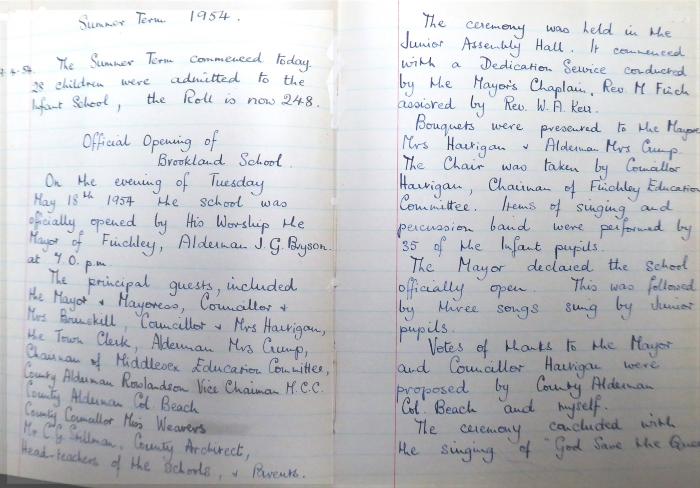 Summer Term 1954.
The Summer Term commenced today.
28 children were admitted to the
Infant School, the Roll is now 248.
Official Opening of
Brookland School.
On the evening of Tuesday
May 18th 1954 the school was
officially opened by His Worship the
Mayor of Finchley, Alderman J.G. Bryson.
at 7.0. p.m.
The principal guests, included
the Mayor & Mayoress, Councillor &
Mrs Brunskill, Councillor & Mrs Hartigan,
the Town Clerk, Alderman Mrs Crump,
Chairman of Middlesex Education Committee,
County Alderman Rowlandson Vice Chairman M.C.C.
County Alderman Col. Beach
County Councillor Miss Weavers
Mr C.G. Stillman, County Architect,
Head-teachers of the Schools, & Parents.
The ceremony was held in the
Junior Assembly Hall. It commenced
with a Dedication Service conducted
by the Mayor's Chaplain, Rev. M Finch
assisted by Rev. W.A. Kerr.
Bouquets were presented to the Mayor
Mrs Hartigan & Alderman Mrs Crump.
The Chair was taken by Councillor
Hartigan, Chairman of Finchley Education
Committee. Items of singing and
percussion band were performed by
35 of the Infant pupils.
The Mayor declared the School
officially open. This was followed
by three songs sung by Junior
pupils.
Votes of thanks to the Mayor
and Councillor Hartigan were
proposed by County Alderman
Col. Beach and myself.
The ceremony concluded with
the singing of "God Save the Quee